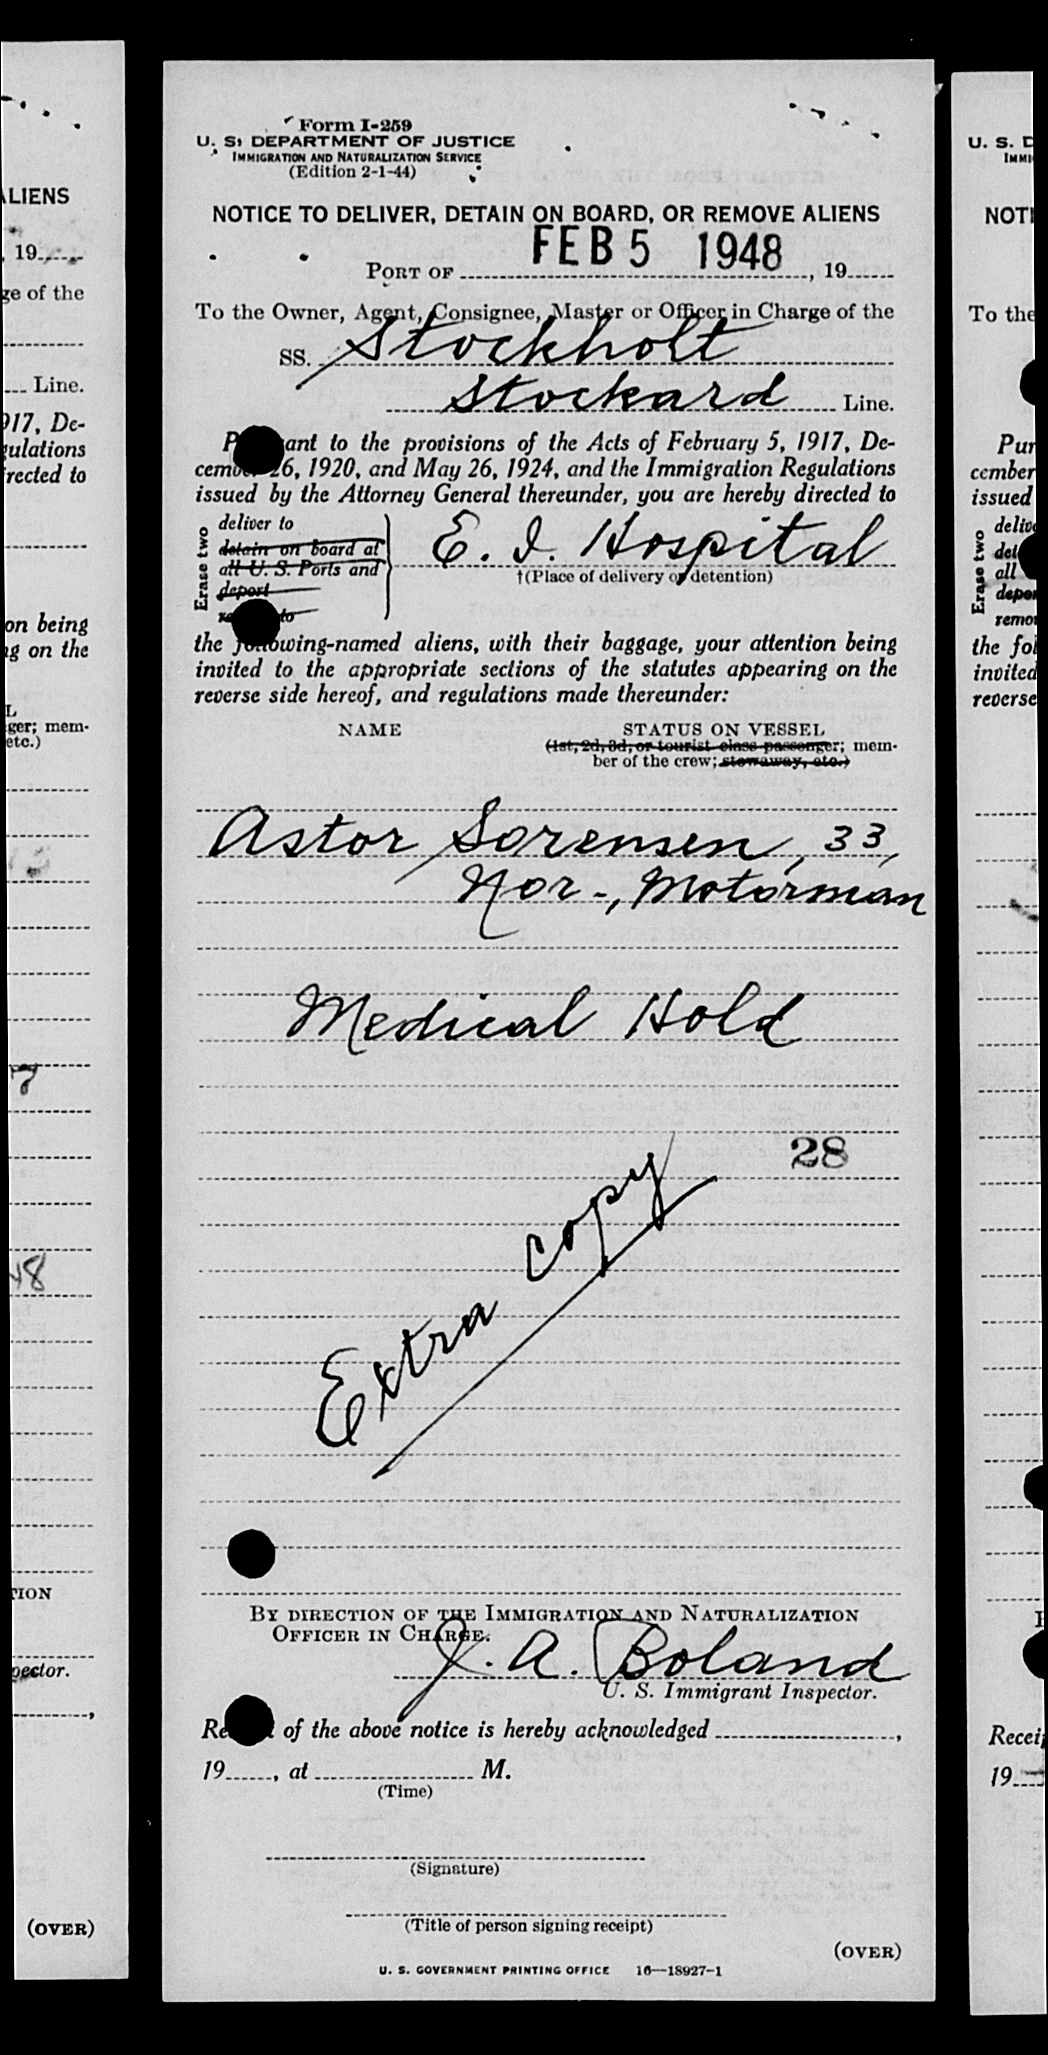 Form I-259
U. S. DEPARTMENT OF JUSTICE
IMMIGRATION AND NATURALIZATION SERVICE
(Edition 2-1-44)
NOTICE TO DELIVER, DETAIN ON BOARD, OR REMOVE ALIENS
FEB 5 1948
PORT OF , 19
To the Owner, Agent, Consignee, Master or Officer in Charge of the
SS. Stockholt
Stockard Line.
P ant to the provisions of the Acts of February 5, 1917, De-
cember 26, 1920, and May 26, 1924, and the Immigration Regulations
issued by the Attorney General thereunder, you are hereby directed to
Erase two
deliver to
detain on board at
all U. S. Ports and
deport
re to
E. I. Hospital
†(Place of delivery or detention)
the following-named aliens, with their baggage, your attention being
invited to the appropriate sections of the statutes appearing on the
reverse side hereof, and regulations made thereunder:
NAME STATUS ON VESSEL
(1st, 2d, 3d, or tourist class passenger; mem-
ber of the crew; stowaway, etc.)
Astor Sorensen, 33,
Nor-, Motorman
Medical Hold
28
Extra copy
BY DIRECTION OF THE IMMIGRATION AND NATURALIZATION
OFFICER IN CHARGE.
J. A. Boland
U. S. Immigrant Inspector.
Re of the above notice is hereby acknowledged ,
19 , at M.
(Time)
(Signature)
(Title of person signing receipt)
(OVER)
U. S. GOVERNMENT PRINTING OFFICE 16—18927-1
ALIENS
, 19
ge of the
Line.
917, De-
gulations
rected to
on being
ng on the
ger; mem-
etc.)
7
48
TION
pector.
,
(OVER)
U. S. D
IMMI
NOTI
To the
Pur
cember
issued
Erase two
delive
det
all
depor
remo
the fol
invited
reverse
Recei
19